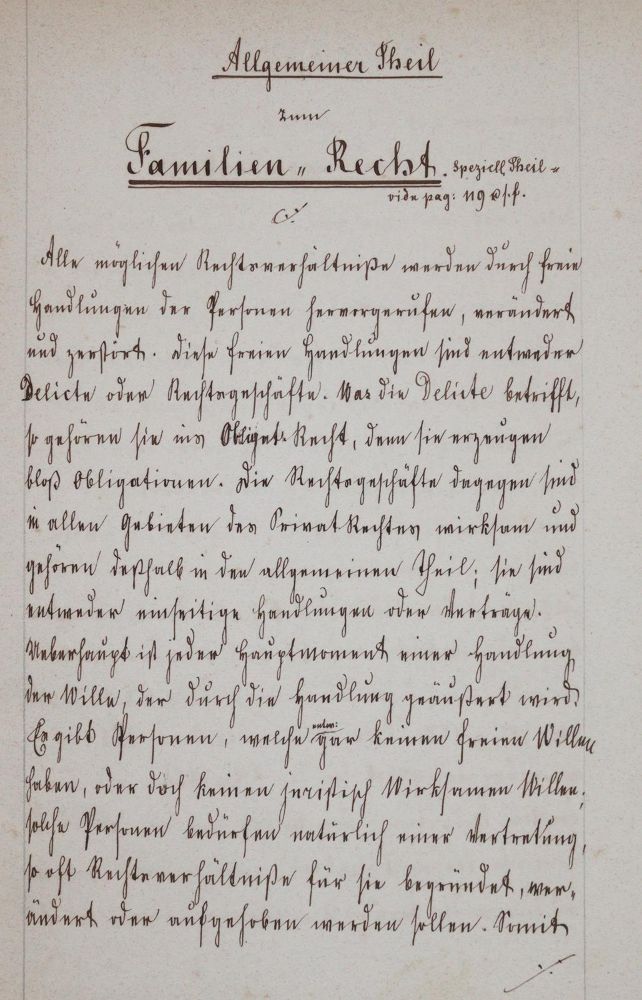 Allgemeiner Theil
zum
Familien „ Recht. Speziell Theil =
vide pag: 119 & s.f.
Alle möglichen Rechtsverhältniße werden durch freie
Handlungen der Personen hervorgerufen, verändert
und zerstört. Diese freien Handlungen sind entweder
Delicte oder Rechtsgeschäfte. Was die Delicte betrifft,
so gehören sie ins Obligat: Recht, denn sie erzeugen
bloß Obligationen. Die Rechtsgeschäfte dagegen sind
in allen Gebieten des PrivatRechtes wirksam und
gehören deßhalb in den allgemeinen Theil; sie sind
entweder einseitige Handlungen oder Verträge.
Ueberhaupt ist jeder Hauptmoment einer Handlung
der Wille, der durch die Handlung geäußert wird.
Es gibt Personen, welche entw: gar keinen freien Willen
haben, oder doch keinen juristisch Wirksamen Willen;
solche Personen bedürfen natürlich einer Vertretung,
so oft Rechtsverhältniße für sie begründet, ver-
ändert oder aufgehoben werden sollen. Somit